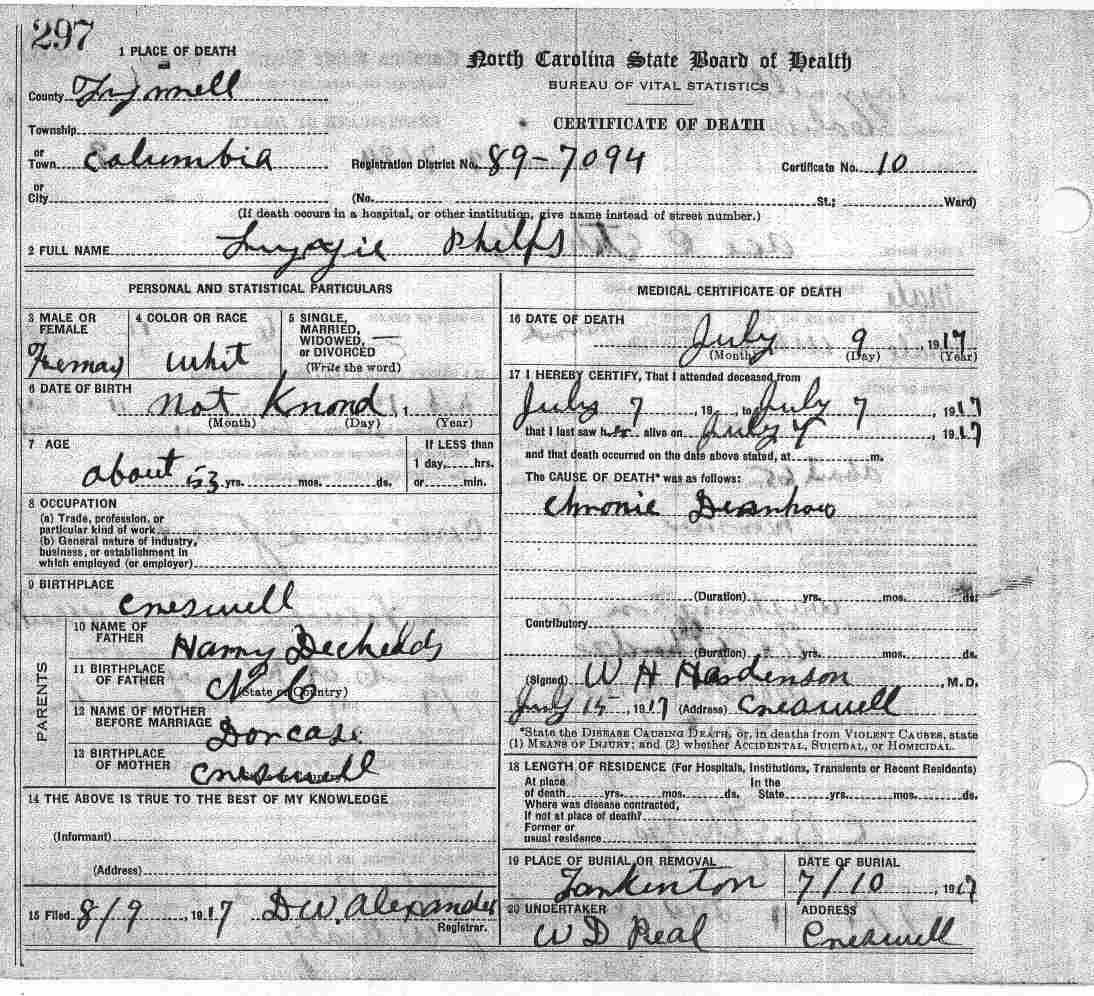 297
1 PLACE OF DEATH
North Carolina State Board of Health
BUREAU OF VITAL STATISTICS
CERTIFICATE OF DEATH
County
Township
or
Town Columbia
Registration District No. 89-7094
Certificate No. 10
or
City
(No. St.; Ward)
(If death occurs in a hospital, or other institution, give name instead of street number.)
2 FULL NAME Phelps
PERSONAL AND STATISTICAL PARTICULARS
3 MALE OR FEMALE
4 COLOR OR RACE
5 SINGLE, MARRIED, WIDOWED, or DIVORCED
(Write the word)
Whit
6 DATE OF BIRTH
Not Knond
(Month) (Day) (Year)
7 AGE
about 53 yrs. mos. ds.
If LESS than
1 day, hrs.
or min.
8 OCCUPATION
(a) Trade, profession, or
particular kind of work
(b) General nature of industry,
business, or establishment in
which employed (or employer)
9 BIRTHPLACE
Creswell
PARENTS
10 NAME OF FATHER
Harry
11 BIRTHPLACE OF FATHER
N C
(State or Country)
12 NAME OF MOTHER BEFORE MARRIAGE
Dorcase
13 BIRTHPLACE OF MOTHER
Creswell
14 THE ABOVE IS TRUE TO THE BEST OF MY KNOWLEDGE
(Informant)
(Address)
15 Filed 8/9, 1917 D.W. Alexander
Registrar.
MEDICAL CERTIFICATE OF DEATH
16 DATE OF DEATH
July 9, 1917
(Month) (Day) (Year)
17 I HEREBY CERTIFY, That I attended deceased from
July 7, 19 , to July 7, 1917
that I last saw her alive on July 7, 1917
and that death occurred on the date above stated, at m.
The CAUSE OF DEATH* was as follows:
Chronic
(Duration) yrs. mos. ds.
Contributory
(Duration) yrs. mos. ds.
(Signed) W H Hardenson, M.D.
July 15, 1917 (Address) Creswell
*State the DISEASE CAUSING DEATH, or, in deaths from VIOLENT CAUSES, state
(1) MEANS OF INJURY; and (2) whether ACCIDENTAL, SUICIDAL, or HOMICIDAL.
18 LENGTH OF RESIDENCE (For Hospitals, Institutions, Transients or Recent Residents)
At place of death yrs. mos. ds. In the State yrs. mos. ds.
Where was disease contracted,
If not at place of death?
Former or
usual residence
19 PLACE OF BURIAL OR REMOVAL
DATE OF BURIAL
7/10, 1917
20 UNDERTAKER
ADDRESS
W D Creswell